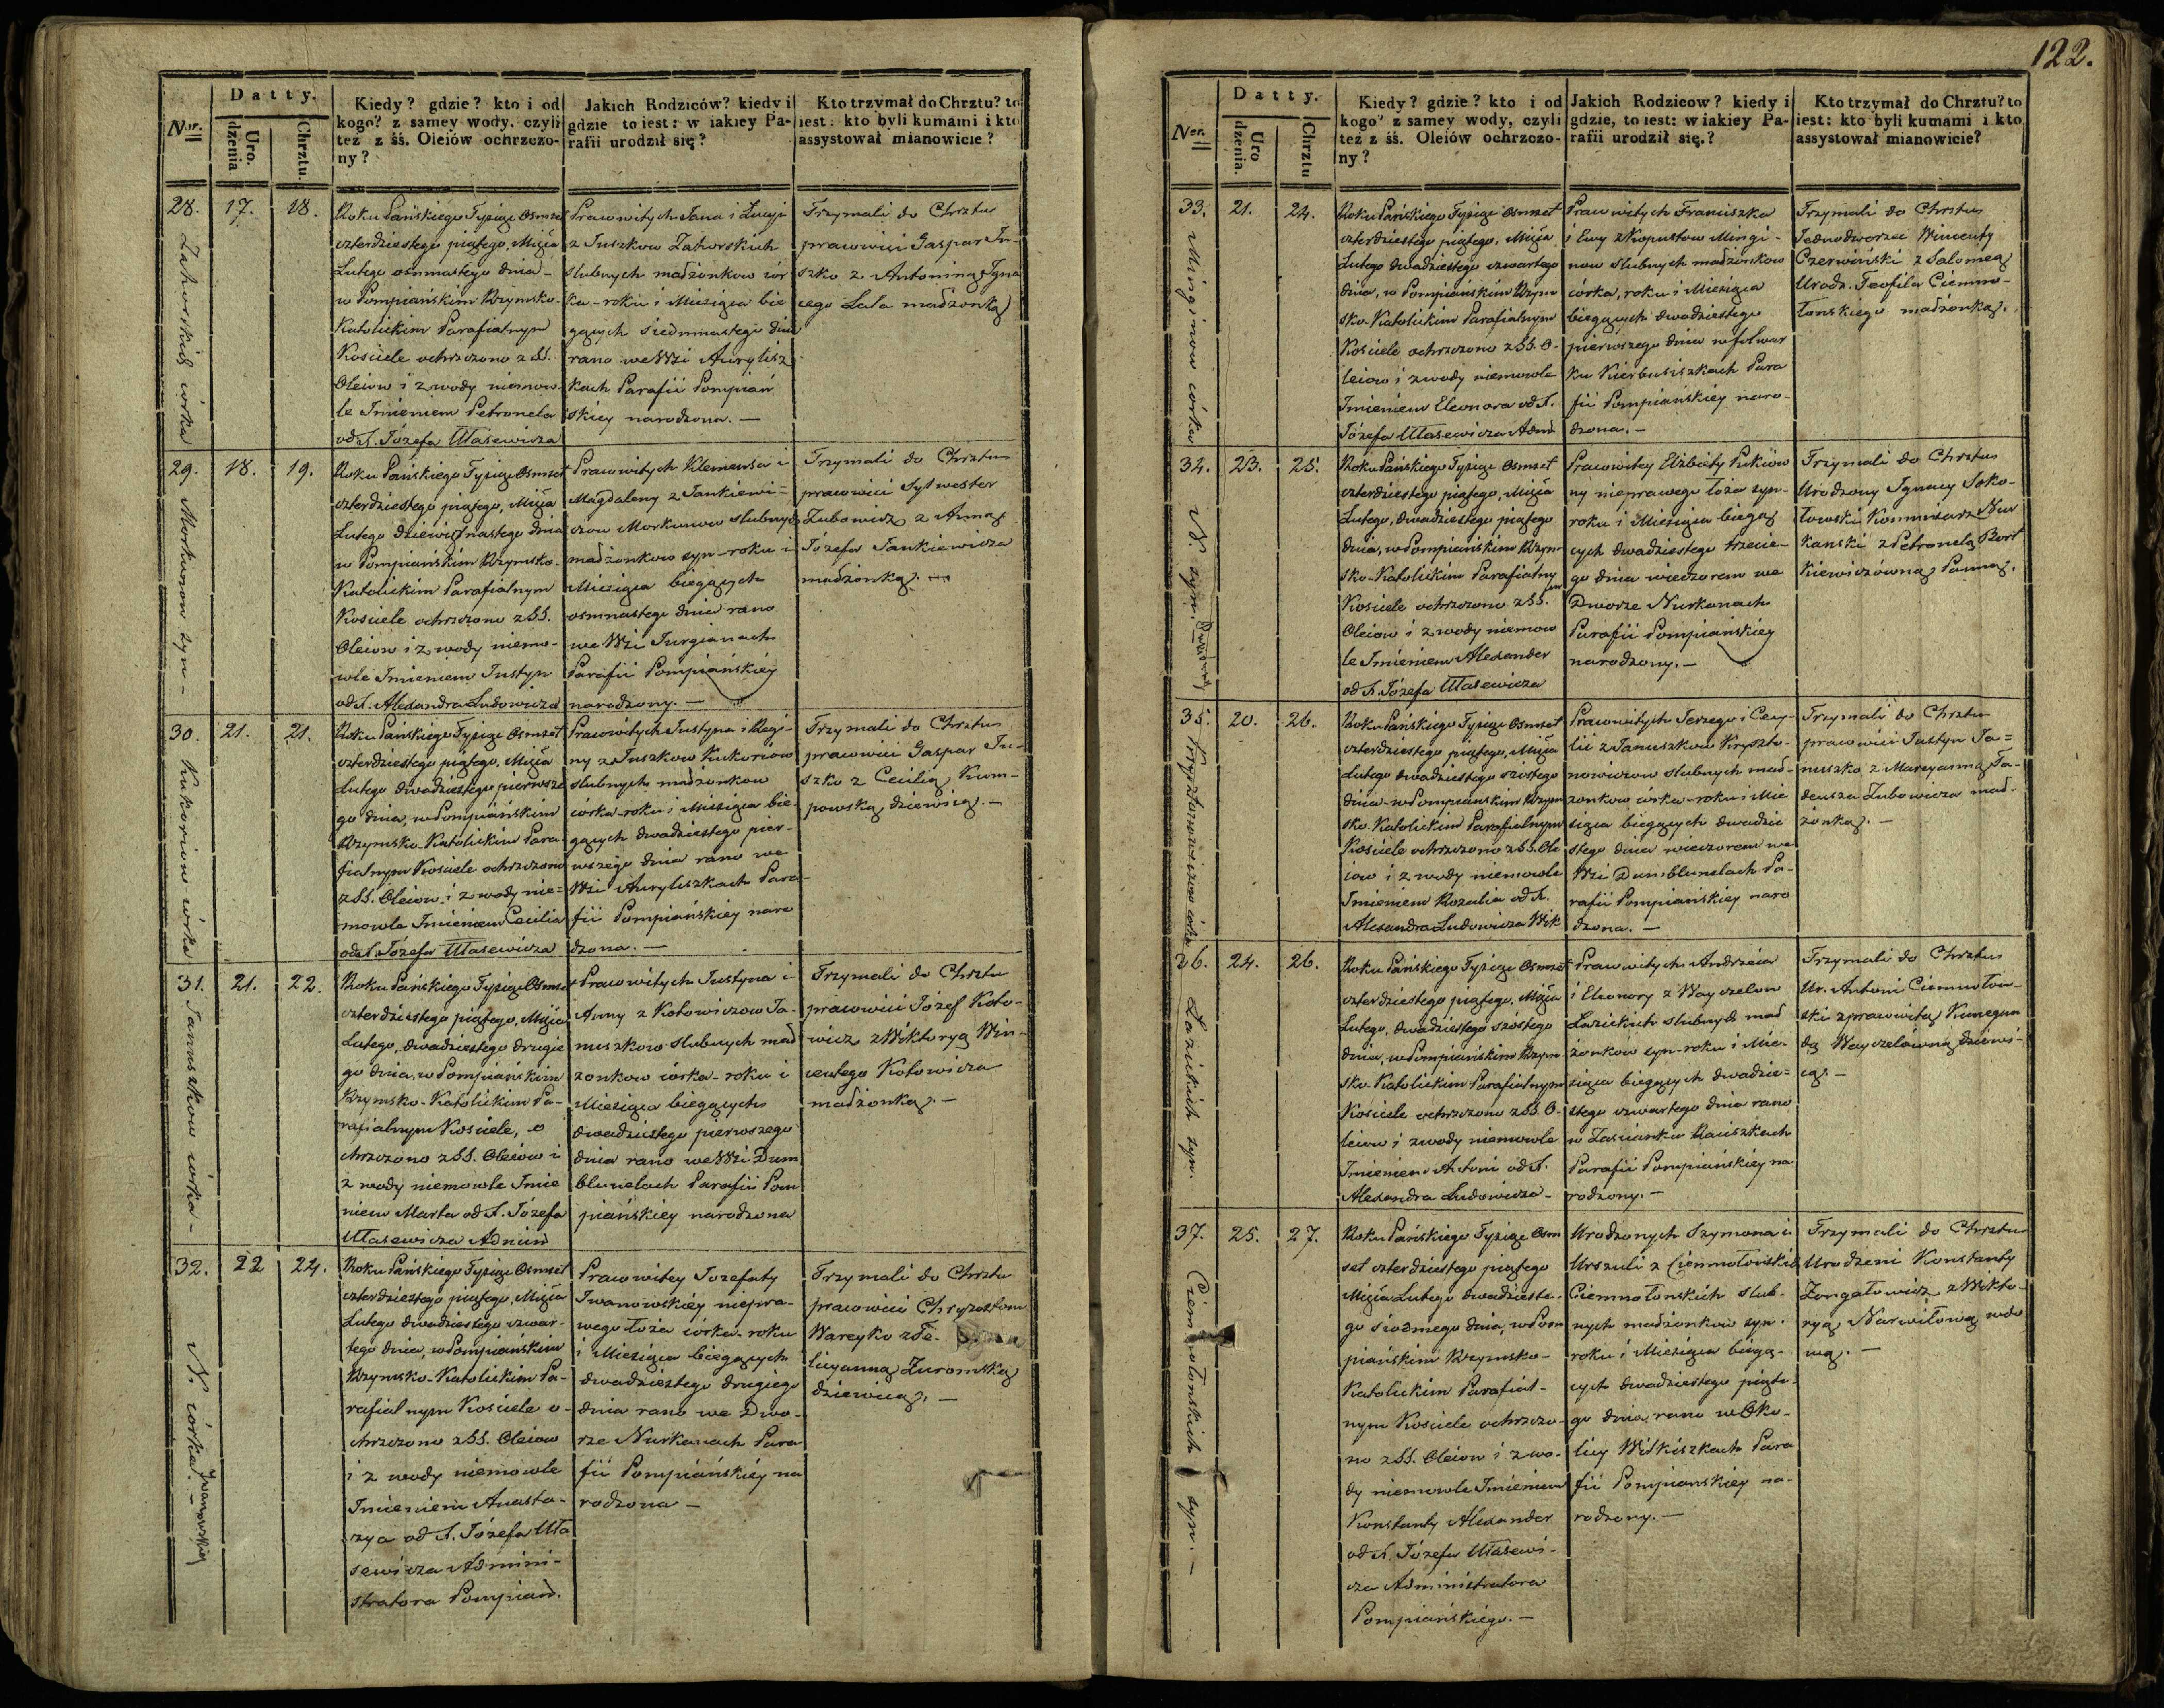 122.
Datty.
Ner.
Uro.
dzenia
Chrztu.
Kiedy? gdzie? kto i od
kogo? z samey wody, czyli
też z śś. Oleiów ochrzczo-
ny?
Jakich Rodziców? kiedy i
gdzie to iest: w iakiey Pa-
rafii urodził się?
Kto trzymał do Chrztu? to
iest: kto byli kumami i kto
assystował mianowicie?
28.
Zahorskich córka
17.
18.
Roku Pańskiego Tysiąc Osmset
czterdziestego piątego, Mięsiąca
Lutego osmnastego dnia -
w Pompiańskim Rzymsko-
Katolickim Parafialnym
Kosciele ochrzczono z SS.
Oleiow i z wody niemow-
le Imieniem Petronela
od X. Józefa Ułasewicza
Prawowitych Jana i Łucyi
z Juszkow Zahorskich
slubnych małżonkow cór
ka - roku i Miesiąca bie
gących siedmnastego dnia
rano we Wsi Aurylisz
kach Parafii Pompiań
skiey narodzona. -
Trzymali do Chrztu
prawowici Gaspar Ju-
szko z Antoniną Igna
cego Lala małżonką
29.
Morkunow syn -
18.
19.
Roku Pańskiego Tysiąc Osmset
czterdziestego piątego, Mięsiąca
Lutego dziewiętnastego dnia
w Pompiańskim Rzymsko-
Katolickim Parafialnym
Kosciele ochrzczono z SS.
Oleiow i z wody niemo-
wle Imieniem Justyn
od X. Alexandra Ludowicza
Prawowitych Klemensa i
Magdaleny z Jankiewi=
czow Morkunow slubnych
małżonkow syn - roku i
Miesiąca biegących
osmnastego dnia rano
we Wsi Jurgianach
Parafii Pompiańskiéy
narodzony. -
Trzymali do Chrztu
prawowici Sylwester
Zubowicz z Anną
Józefa Jankiewicza
małżonką. -
30.
Kukoriow córka
21.
21.
Roku Pańskiego Tysiąc Osmset
czterdziestego piątego, Mięsiąca
Lutego dwadziestego pierwsze
go dnia, w Pompiańskim
Rzymsko-Katolickim Para-
fialnym Kosciele ochrzczono
z SS. Oleiow i z wody nie=
mowle Imieniem Cecilia
od X. Józefa Ułasewicza
Prawowitych Justyna i Regi-
ny z Juszkow Kukoriów
slubnych małżonkow
córka - roku i Miesiąca bie-
gących dwadziestego pier-
wszego dnia rano we
Wsi Auryliszkach Para
fii Pompiańskiey naro
dzona. -
Trzymali do Chrztu
prawowici Gaspar Ju-
szko z Cecilią Kum-
powską dziewicą. -
31.
Januszkow córka -
21.
22.
Roku Pańskiego Tysiąc Osmset
czterdziestego piątego, Mięsiąca
Lutego, dwadziestego drugie
go dnia, w Pompiańskim
Rzymsko-Katolickim Pa-
rafialnym Kosciele, o
chrzczono z SS. Oleiow i
z wody niemowle Imie
niem Marta od X. Józefa
Ułasewicza Admin
Prawowitych Justyna i
Anny z Kotowiczow Ja-
nuszkow slubnych mał
zonkow córka - roku i
Miesiąca biegących
dwadziestego pierwszego
dnia rano we Wsi Dum
blunelach Parafii Pom
piańskiey narodzona
Trzymali do Chrztu
prawowici Józef Koto-
wicz z Wiktoryą Win-
centego Kotowicza
małżonką. -
32.
N. córka. -
Iwanowskiej
22
24.
Roku Pańskiego Tysiąc Osmset
czterdziestego piątego, Mięsiąca
Lutego dwadziestego czwar-
tego dnia, w Pompiańskim
Rzymsko-Katolickim Pa-
rafialnym Kosciele o-
chrzczono z SS. Oleiow
i z wody niemowle
Imieniem Anasta-
zya od X. Józefa Uła
sewicza Admini-
stratora Pompiań.
Prawowitey Jozefaty
Iwanowskiéy niepra-
wego łoża córka - roku
i Miesiąca biegących
dwadziestego drugiego
dnia rano we Dwo-
rze Nurkanach Para
fii Pompiańskiéy na
rodzona -
Trzymali do Chrztu
prawowici Chryzostom
Wareyko z Fe-
licyanną Zuromską
dziewicą. -
Datty.
Nen.
Uro
dzenia.
Chrztu
Kiedy? gdzie? kto i od
kogo? z samey wody, czyli
też z śś. Oleiów ochrzczo-
ny?
Jakich Rodzicow? kiedy i
gdzie, to iest: w iakiey Pa-
rafii urodził się.?
Kto trzymał do Chrztu? to
iest: kto byli kumami i kto
assystował mianowicie?
33.
Minginow córka
21.
24.
Roku Pańskiego Tysiąc Osmset
czterdziestego piątego, Mięsiąca
Lutego dwadziestego czwartego
dnia, w Pompiańskim Rzym
sko-Katolickim Parafialnym
Kosciele ochrzczono z SS. O-
leiow i z wody niemowle
Imieniem Eleonora od X.
Józefa Ułasewicza Adm
Prawowitych Franciszka
i Ewy z Kopustow Mingi-
now slubnych małżonkow
córka, roku i Miesiąca
biegących dwadziestego
pierwszego dnia w folwar
ku Kierbusiszkach Para
fii Pompiańskiéy naro-
dzona. -
Trzymali do Chrztu
Jednodworzec Wincenty
Czerwiński z Salomeą
Urodz. Teofila Ciemno-
łonskiego małżonką.
34.
N. syn. -
23.
25.
Roku Pańskiego Tysiąc Osmset
czterdziestego piątego, Mięsiąca
Lutego, dwadziestego piątego
dnia, w Pompiańskim Rzym-
sko-Katolickim Parafialny
m
Kosciele ochrzczono z SS.
Oleiow i z wody niemow
le Imieniem Alexander
od X. Józefa Ułasewicza
Prawowitey Elżbiety Pukiów
ny nieprawego łoża syn -
roku i Miesiąca biegą
cych dwadziestego trzecie-
go dnia wieczorem we
Dworze Nurkanach
Parafii Pompiańskiey
narodzony. -
Trzymali do Chrztu
Urodzony Ignacy Soko-
łowski Kommisarz Nur
kanski z Petronelą Bort
kiewiczówną Panną.
35.
Krysztonowiczow córka
20.
26.
Roku Pańskiego Tysiąc Osmset
czterdziestego piątego, Mięsiąca
Lutego dwadziestego szóstego
dnia - w Pompiańskim Rzym
sko-Katolickim Parafialnym
Kosciele ochrzczono z SS. Ole
iow i z wody niemowle
Imieniem Rozalia od X.
Alexandra Ludowicza Wik
Prawowitych Jerzego i Cecy-
lii z Januszkow Kryszto-
nowiczow slubnych mał-
zonkow córka - roku i Mie
siąca biegących dwadzie
stego dnia wieczorem we
Wsi Dumblunelach Pa-
rafii Pompiańskiey naro
dzona. -
Trzymali do Chrztu
prawowici Justyn Ja=
nuszko z Maryanną Ta-
deusza Zubowicza mał-
zonką. -
36.
Łazickich syn.
24.
26.
Roku Pańskiego Tysiąc Osmset
czterdziestego piątego, Mięsiąca
Lutego, dwadziestego szóstego
dnia, w Pompiańskim Rzym
sko-Katolickim Parafialnym
Kosciele ochrzczono z SS. O-
leiow i z wody niemowle
Imieniem Antoni od X.
Alexandra Ludowicza -
Prawowitych Andrzeia
i Eleonory z Wayczelow
Łazickich slubnych mał
żonków syn - roku i Mie-
siąca biegących dwadzie=
stego czwartego dnia rano
w Zascianku Raciszkach
Parafii Pompiańskiéy na
rodzony. -
Trzymali do Chrztu
Ur. Antoni Ciemnołoń-
ski z prawowitą Kunegun
dą Wayczelówną dziewi-
cą. -
37.
Ciemnołonskich syn. -
25.
27.
Roku Pańskiego Tysiąc Osm
set czterdziestego piątego
Mięsiąca Lutego dwadzieste-
go siódmego dnia, w Pom
piańskim Rzymsko-
Katolickim Parafial-
nym Kosciele ochrzczo-
no z SS. Oleiow i z wo-
dy niemowle Imieniem
Konstanty Alexander
od X. Józefa Ułasewi-
cza Administratora
Pompiańskiégo. -
Urodzonych Szymona i
Urszuli z Ciemnołońskich
Ciemnołonskich slub-
nych małżonkow syn -
roku i Miesiąca biegą-
cych dwadziestego piąte-
go dnia, rano w Oko-
licy Wilkiszkach Para
fii Pompianskiey na-
rodzony. -
Trzymali do Chrztu
Urodzeni Konstanty
Zongołłowicz z Wikto-
ryą Narwiłową wdo
wą. -